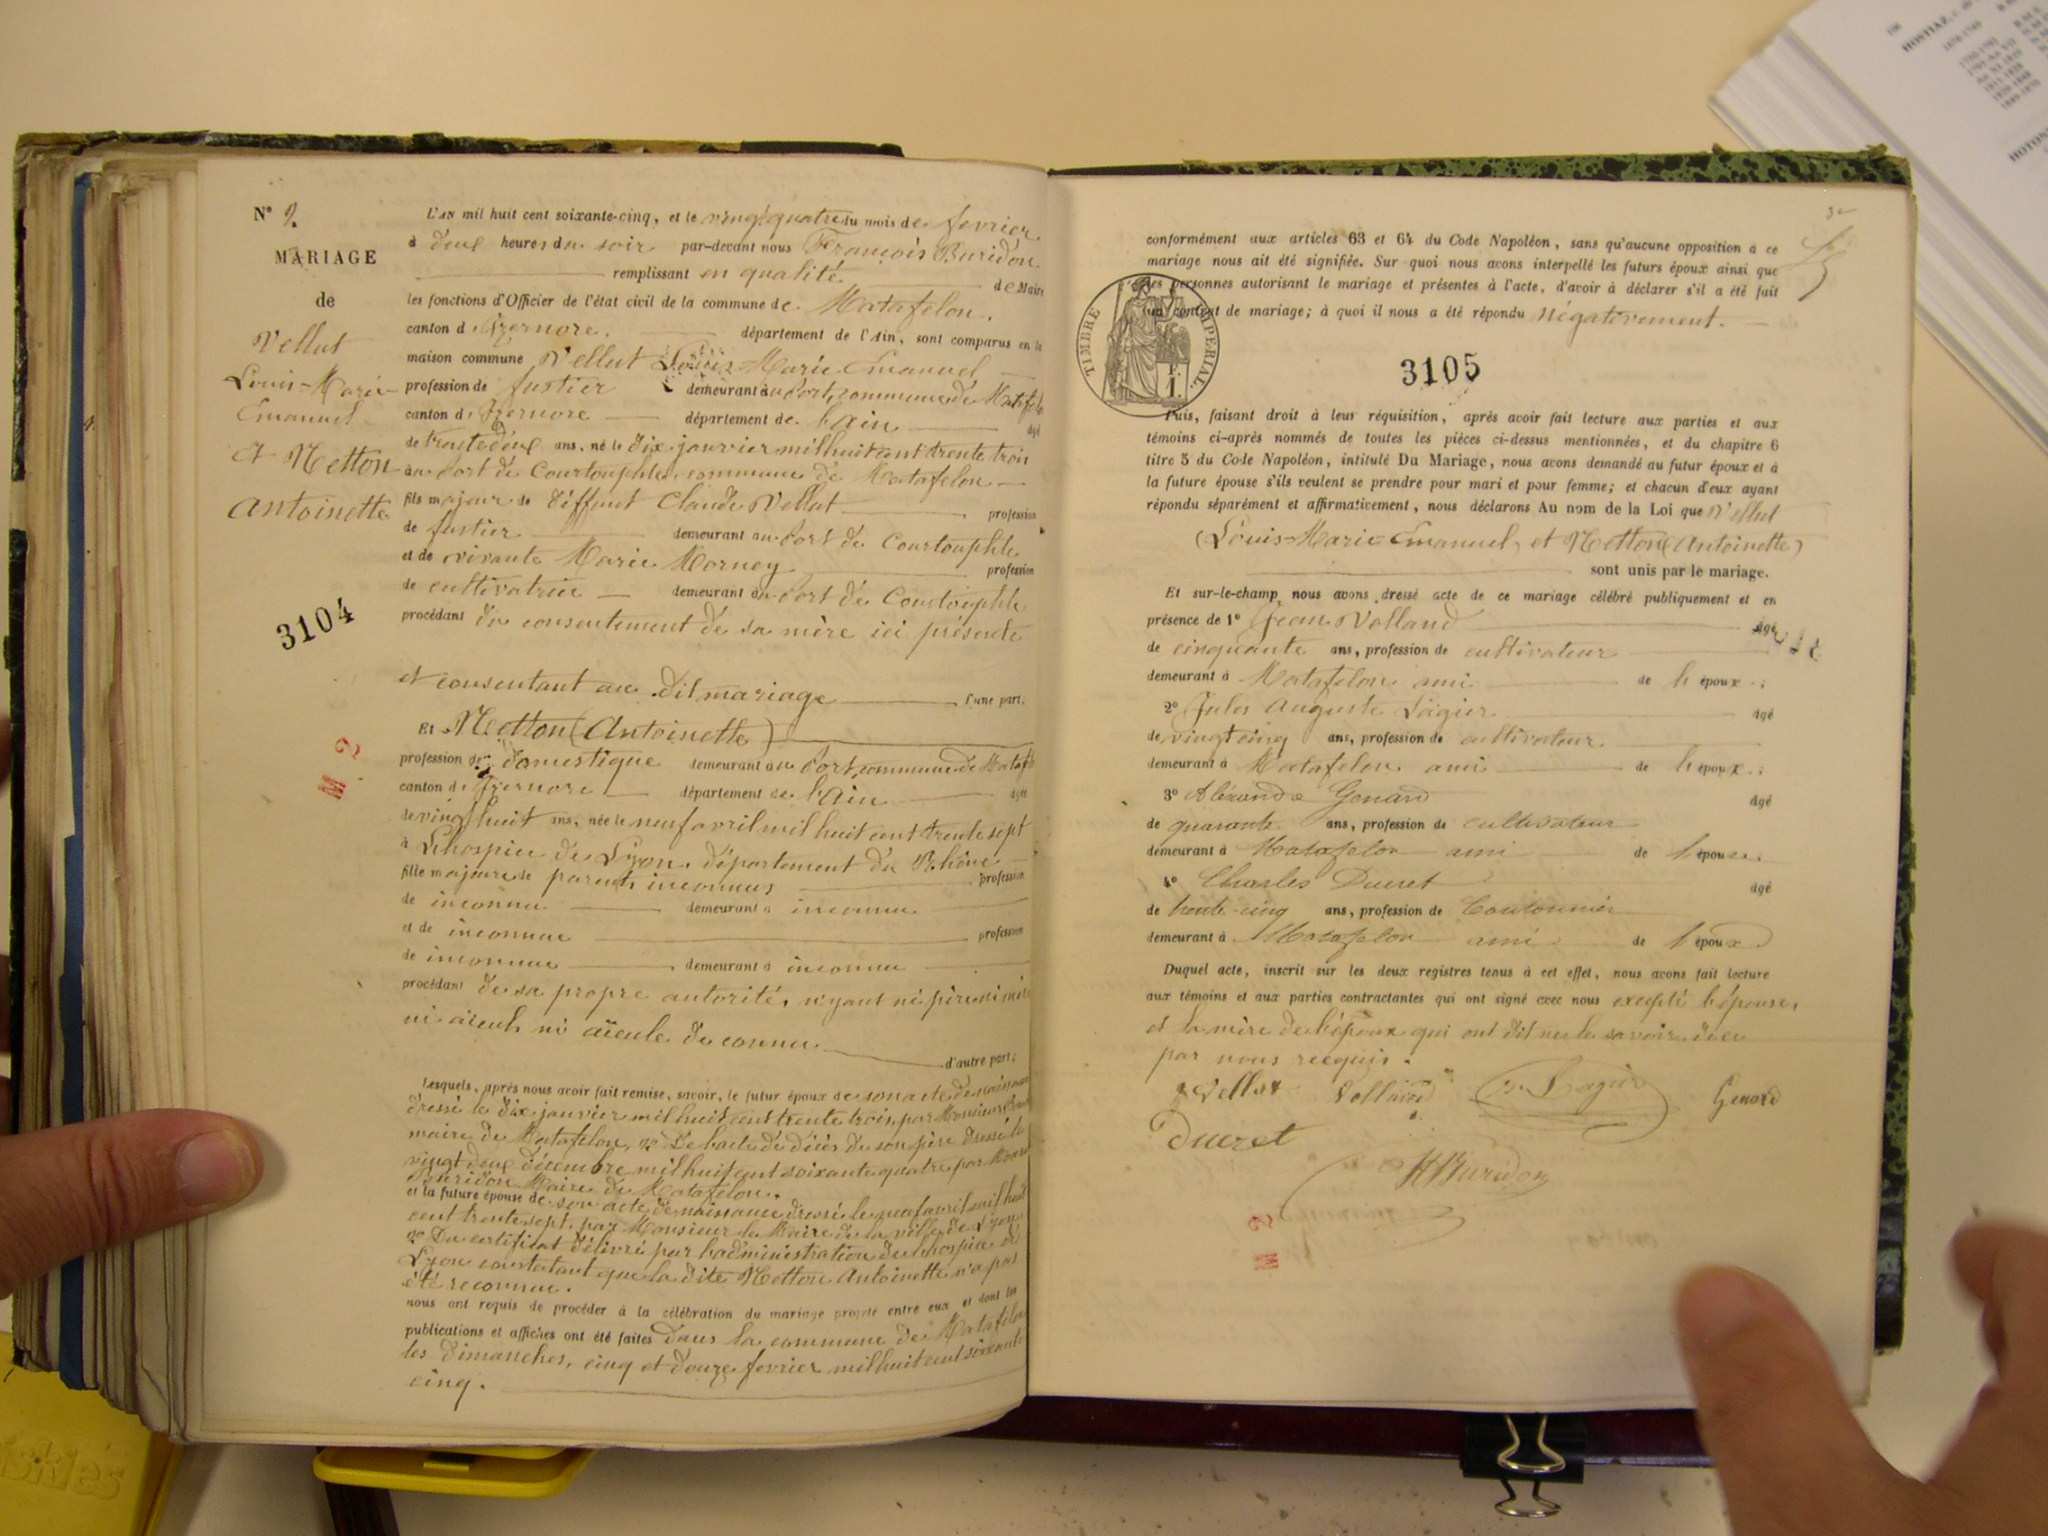 N° 2
MARIAGE
de
Vellut
Louis-Marie
Emanuel
et Metton
Antoinette
3104
M 2
L'AN mil huit cent soixante-cinq, et le vingt quatre du mois de fevrier
à deux heures du soir par-devant nous François Buridon
remplissant en qualité de Maire
les fonctions d'Officier de l'état civil de la commune de Matafelon,
canton d'Izernore, département de l'Ain, sont comparus en la
maison commune Vellut Louis Marie Emanuel
profession de fustier demeurant au Port, commune de Matafelon
canton d'Izernore département de l'Ain âgé
de trente deux ans, né le dix janvier mil huit cent trente trois
au Port de Courtouphle, commune de Matafelon
fils majeur de déffunt Claude Vellut profession
de fustier demeurant au Port de Courtouphle
et de vivante Marie Morney profession
de cultivatrice demeurant au Port de Courtouphle
procédant du consentement de sa mère ici présente
et consentant au dit mariage d'une part.
Et Metton (Antoinette)
profession de domestique demeurant au Port, commune de Mataf
canton d'Izernore département de l'Ain âgée
de vingt huit ans, née le neuf avril mil huit cent trente sept
à L'hospice de Lyon, département du Rhône
fille majeure de parents inconnus profession
de inconnu demeurant à inconnu
et de inconnue profession
de inconnue demeurant à inconnu
procédant de sa propre autorité, n'yant ni père ni mère
ni aïeuls ni aïeule de connu
d'autre part;
Lesquels, après nous avoir fait remise, savoir, le futur époux de son acte de naissance
dressé le dix janvier mil huit cent trente trois, par Monsieur
maire de Matafelon, 2° De l'acte de décès de son père dressé le
vingt deux décembre mil huit cent soixante quatre par Monsieur
Buridon Maire de Matafelon.
et la future épouse de son acte de naissance dressé le neuf avril mil huit
cent trente sept, par Monsieur le Maire de la ville de Lyon,
2° Du certificat délivré par l'administration de l'hospice de
Lyon constatant que la dite Metton Antoinette n'a pas
été reconnue.
nous ont requis de procéder à la célébration du mariage projeté entre eux et dont les
publications et affiches ont été faites dans la commune de Matafelon
les dimanches, cinq et douze fevrier mil huit cent soixante
cinq.
conformément aux articles 63 et 64 du Code Napoléon, sans qu'aucune opposition a ce
mariage nous ait été signifiée. Sur quoi nous avons interpellé les futurs époux ainsi que
les personnes autorisant le mariage et présentes à l'acte, d'avoir à déclarer s'il a été fait
un contrat de mariage; à quoi il nous a été répondu négativement.
TIMBRE IMPERIAL.
3105
Puis, faisant droit à leur réquisition, après avoir fait lecture aux parties et aux
témoins ci-après nommés de toutes les pièces ci-dessus mentionnées, et du chapitre 6
titre 5 du Code Napoléon, intitulé Du Mariage, nous avons demandé au futur époux et à
la future épouse s'ils veulent se prendre pour mari et pour femme; et chacun d'eux ayant
répondu séparément et affirmativement, nous déclarons Au nom de la Loi que Vellut
(Louis-Marie-Emanuel) et Metton (Antoinette)
sont unis par le mariage.
Et sur-le-champ nous avons dressé acte de ce mariage célébré publiquement et en
présence de 1° Jean Volland âgé
de cinquante ans, profession de cultivateur
demeurant à Matafelon ami de l'époux;
2° Jules Auguste Lagier âgé
de vingt cinq ans, profession de cultivateur
demeurant à Matafelon ami de l'époux;
3° Alexandre Genard âgé
de quarante ans, profession de cultivateur
demeurant à Matafelon ami de l'époux.
4° Charles Ducret âgé
de trente-cinq ans, profession de Cantonnier
demeurant à Matafelon ami de l'époux
Duquel acte, inscrit sur les deux registres tenus à cet effet, nous avons fait lecture
aux témoins et aux parties contractantes qui ont signé avec nous excepté l'épouse,
et la mère de l'époux qui ont dit ne le savoir de ce
par nous recquis.
Vellut Volland Lagier Genard
Ducret
Buridon
M 2